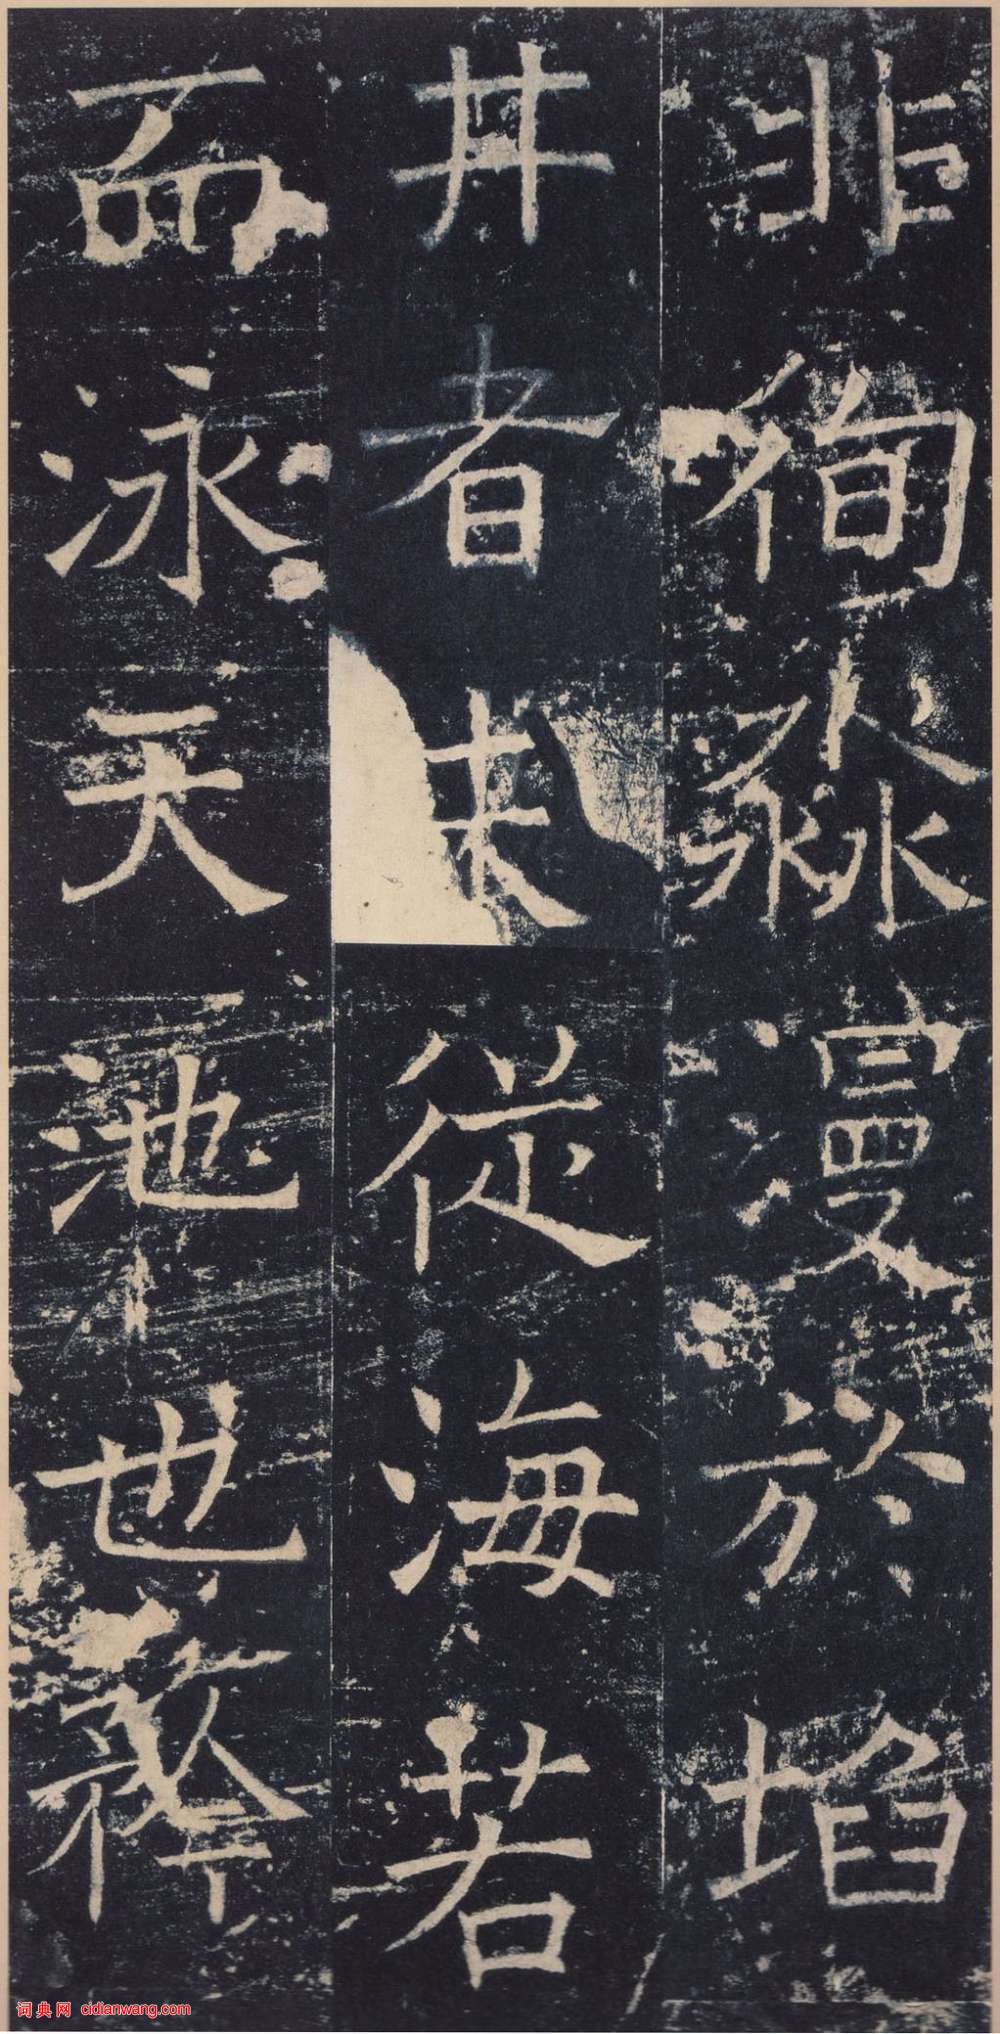 非徇淼漫於埳
井者未從海若
而泳天池也释
词典网 cidianwang.com